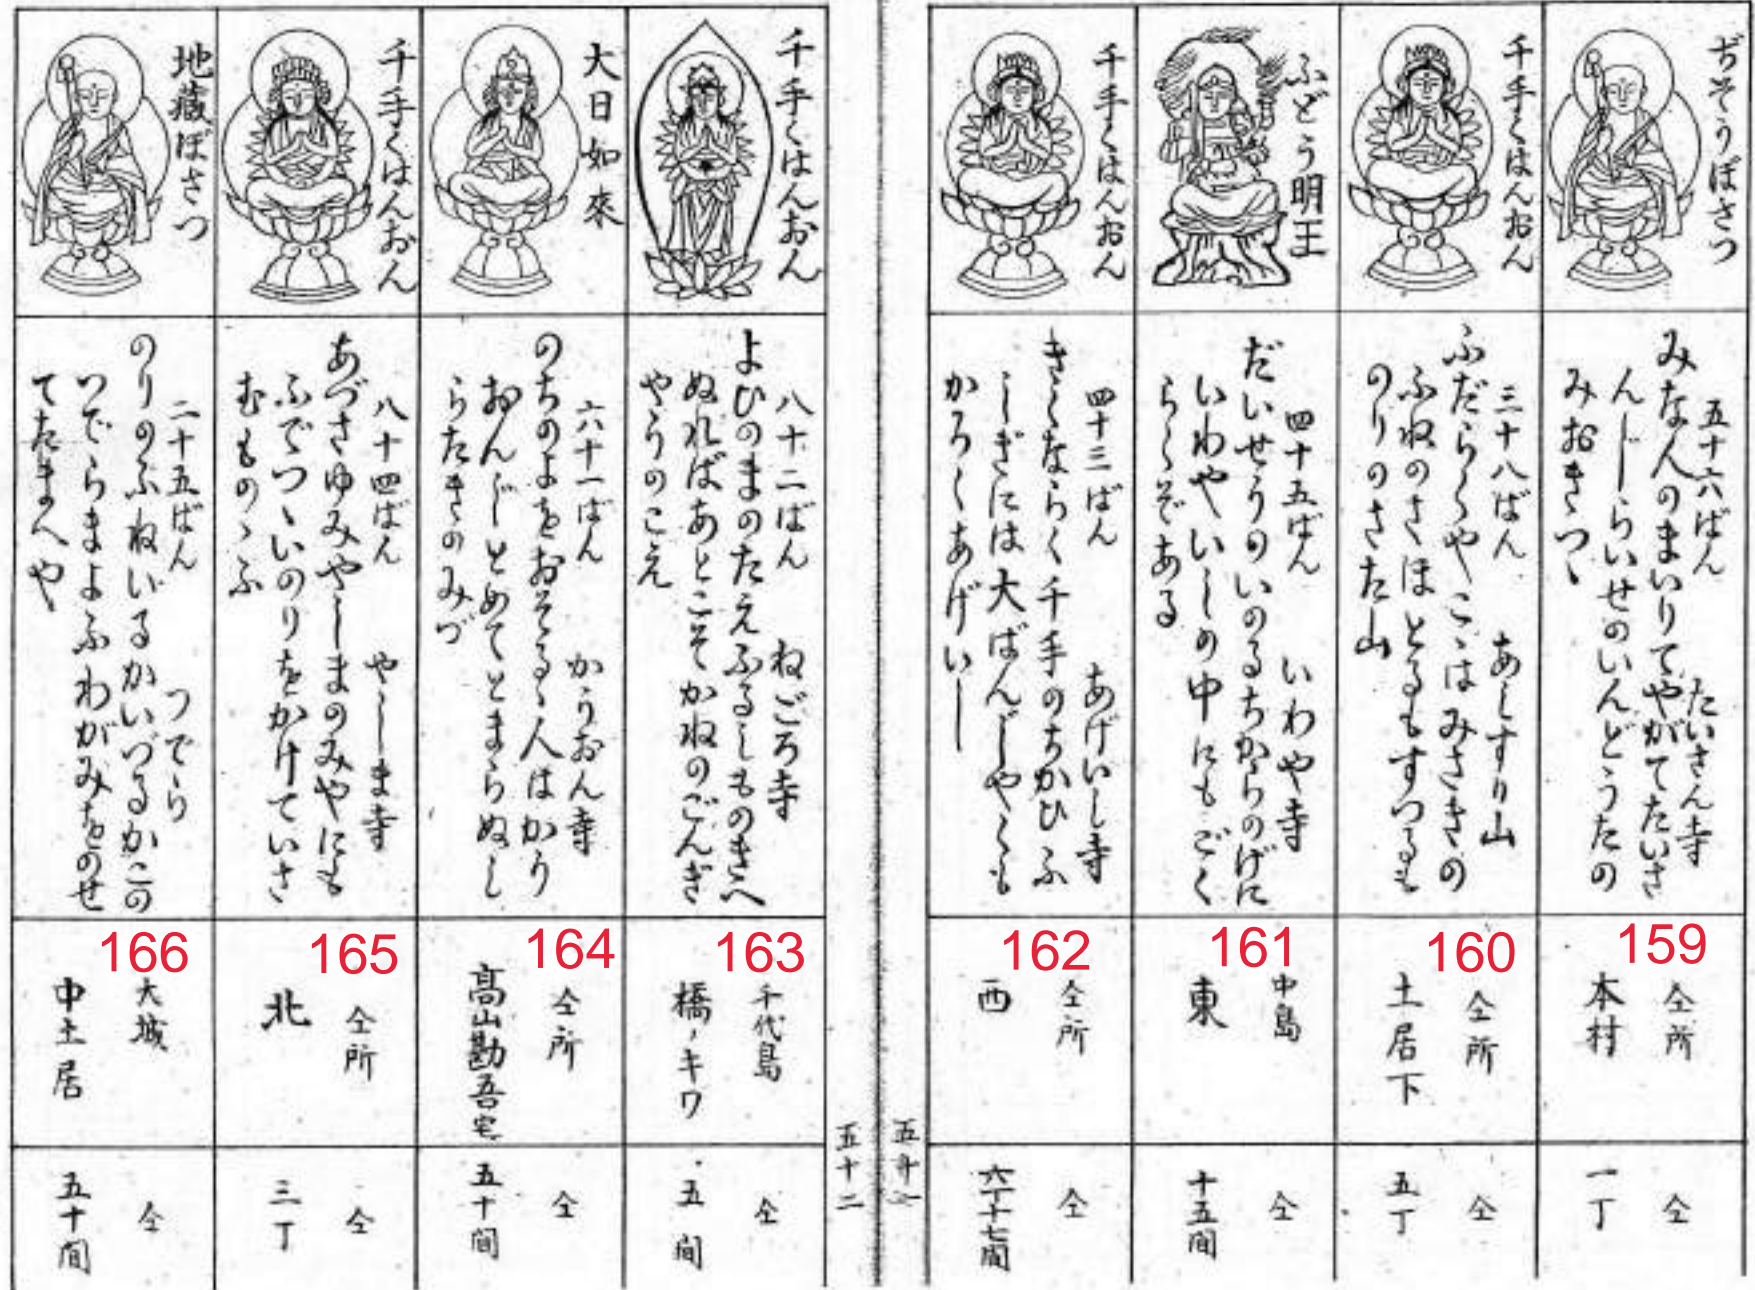 ぢそうぼさつ
五十六ばん　たいさん寺
みな人のまいりてやがてたいさ
んじらいせのいんどうたの
みおきつゝ
159
仝所
本村
仝
一丁
千手くはんおん
三十八ばん　あしすり山
ふだらくやこゝはみさきの
ふねのさほとるもすつるも
のりのさた山
160
仝所
土居下
仝
五丁
ふどう明王
四十五ばん　いわや寺
だいせうのいのるちからのげに
いわやいしの中にもごく
らくぞある
161
中島
東
仝
十五間
千手くはんおん
四十三ばん　あげいし寺
きくならく千手のちかひふ
しぎには大ばんじやくも
かろくあげいし
162
仝所
西
仝
六丁十七間
五十一
千手くはんおん
八十二ばん　ねごろ寺
よひのまのたえふるしものきへ
ぬればあとこそかねのごんぎ
やうのこえ
163
千代島
橋ノキワ
仝
五間
大日如來
六十一ばん　かうおん寺
のちのよをおそるゝ人はかう
おんじとめてとまらぬし
らたきのみづ
164
仝所
髙山勘吾宅
仝
五十間
千手くはんおん
八十四ばん　やしま寺
あづさゆみやしまのみやにも
ふでつゝいのりをかけていさ
むものゝふ
165
仝所
北
仝
三丁
地蔵ぼさつ
二十五ばん　つでら
のりのふねいるかいづるかこの
つでらまよふわがみをのせ
てたまへや
166
大城
中土居
仝
五十間
五十二